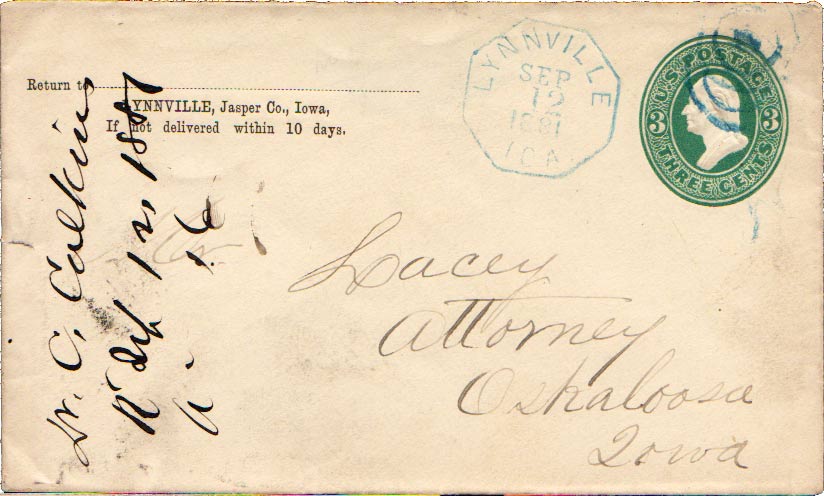 Return to
LYNNVILLE, Jasper Co., Iowa,
If not delivered within 10 days.
LYNNVILLE
SEP
12
1881
IOA
U.S. POSTAGE
3 3
THREE CENTS
Lacey
Attorney
Oskaloosa
Iowa
Dr. C. Calkins
1881